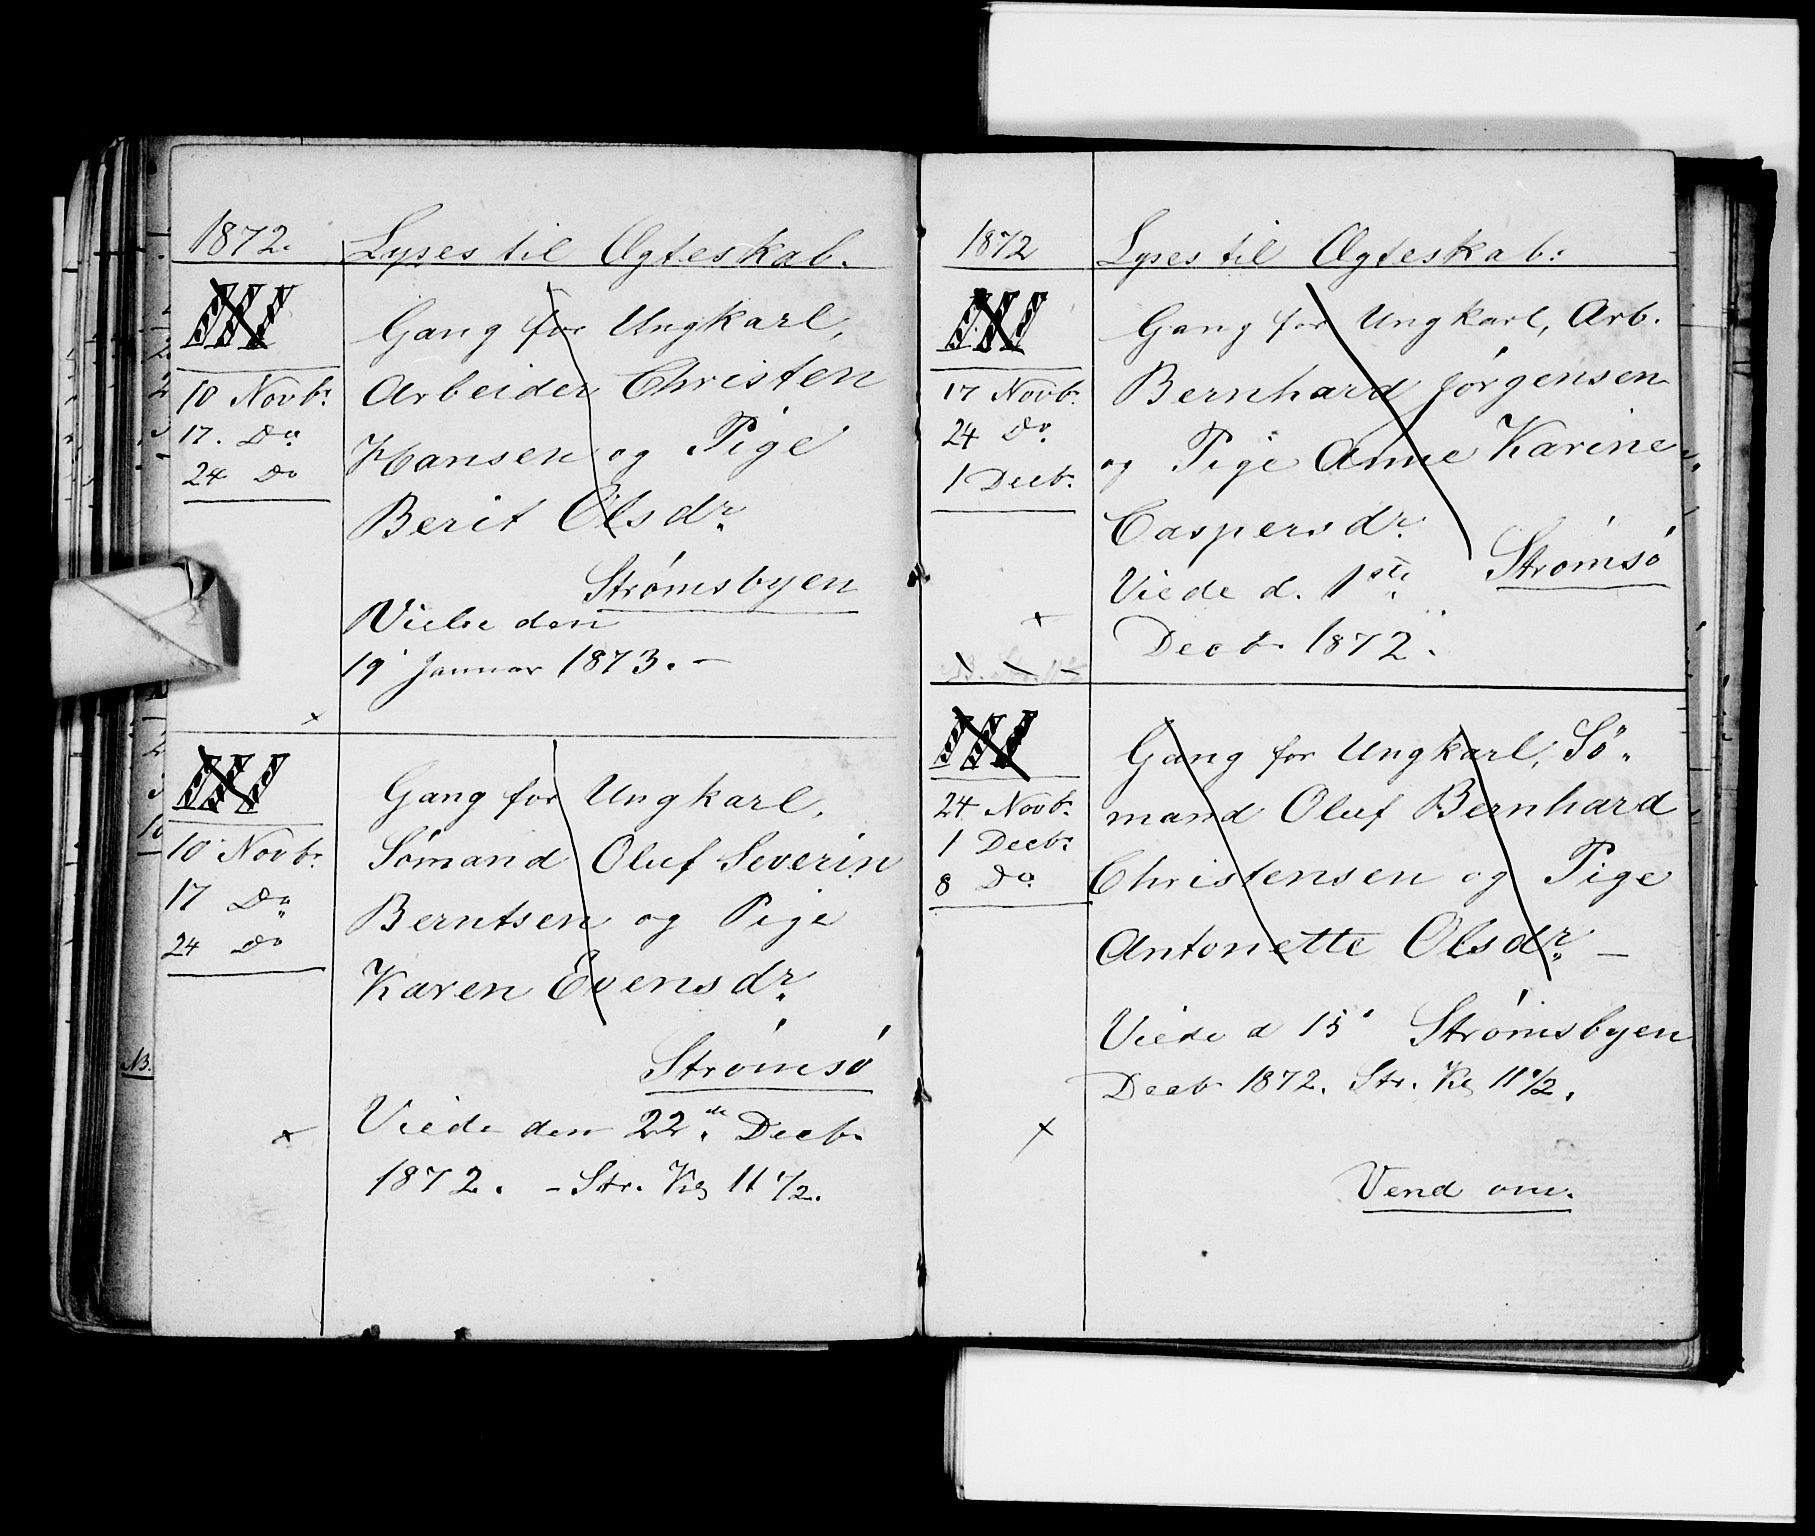 1872. Lyses til Ægteskab.
III
Gang for Ungkarl,
10 Novbr. Arbeider Christen
17. Do.
24 Do Hansen og Pige
Berit Olsdr.
Strømsbyen
Viede den
19 Januar 1873. –
×
III
Gang for Ungkarl,
10 Novbr. Sømand Oluf Severin
17 Do. Berntsen og Pige
24 Do
Karen Evensdr.
Strømsø
× Viede den 22de Decbr
1872. – Str. Kl 11 1/2.
1872 Lyses til Ægteskab.
III
Gang for Ungkarl, Arb.
17 Novbr. Bernhard Jørgensen
24 Do.
1 Decbr. og Pige Anne Karine
Caspersdr.
Strømsø
Viede d. 1ste
×
Decbr 1872.
III
Gang for Ungkarl, Sø„
24 Novbr. mand Oluf Bernhard
1 Decbr.
8 Do. Christensen og Pige
Antonette Olsdr. –
Viede d 15 Strømsbyen
Decbr 1872. Str. Kl 11 1/2.
×
Vend om.
NB.